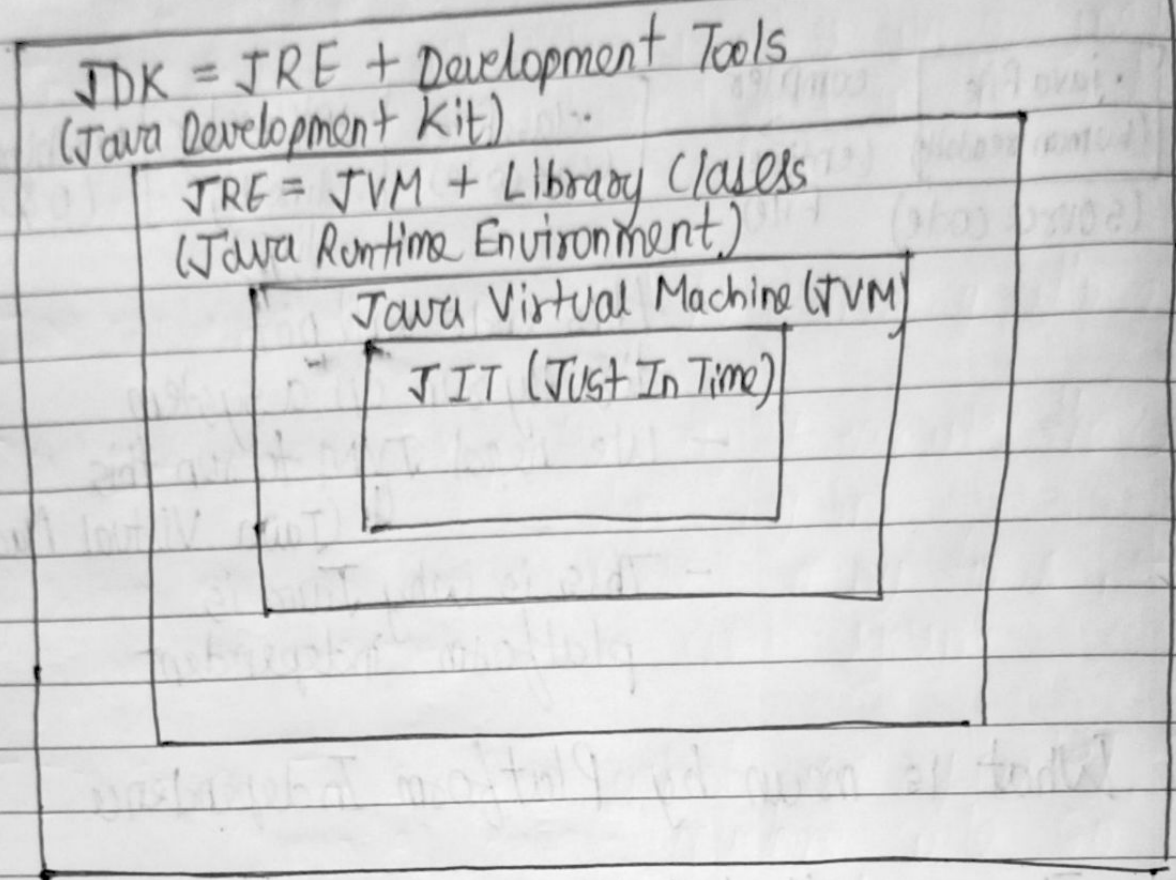 JDK = JRE + Development Tools
(Java Development Kit)
JRE = JVM + Library Clasess
(Java Runtime Environment)
Java Virtual Machine (JVM)
JIT (Just In Time)